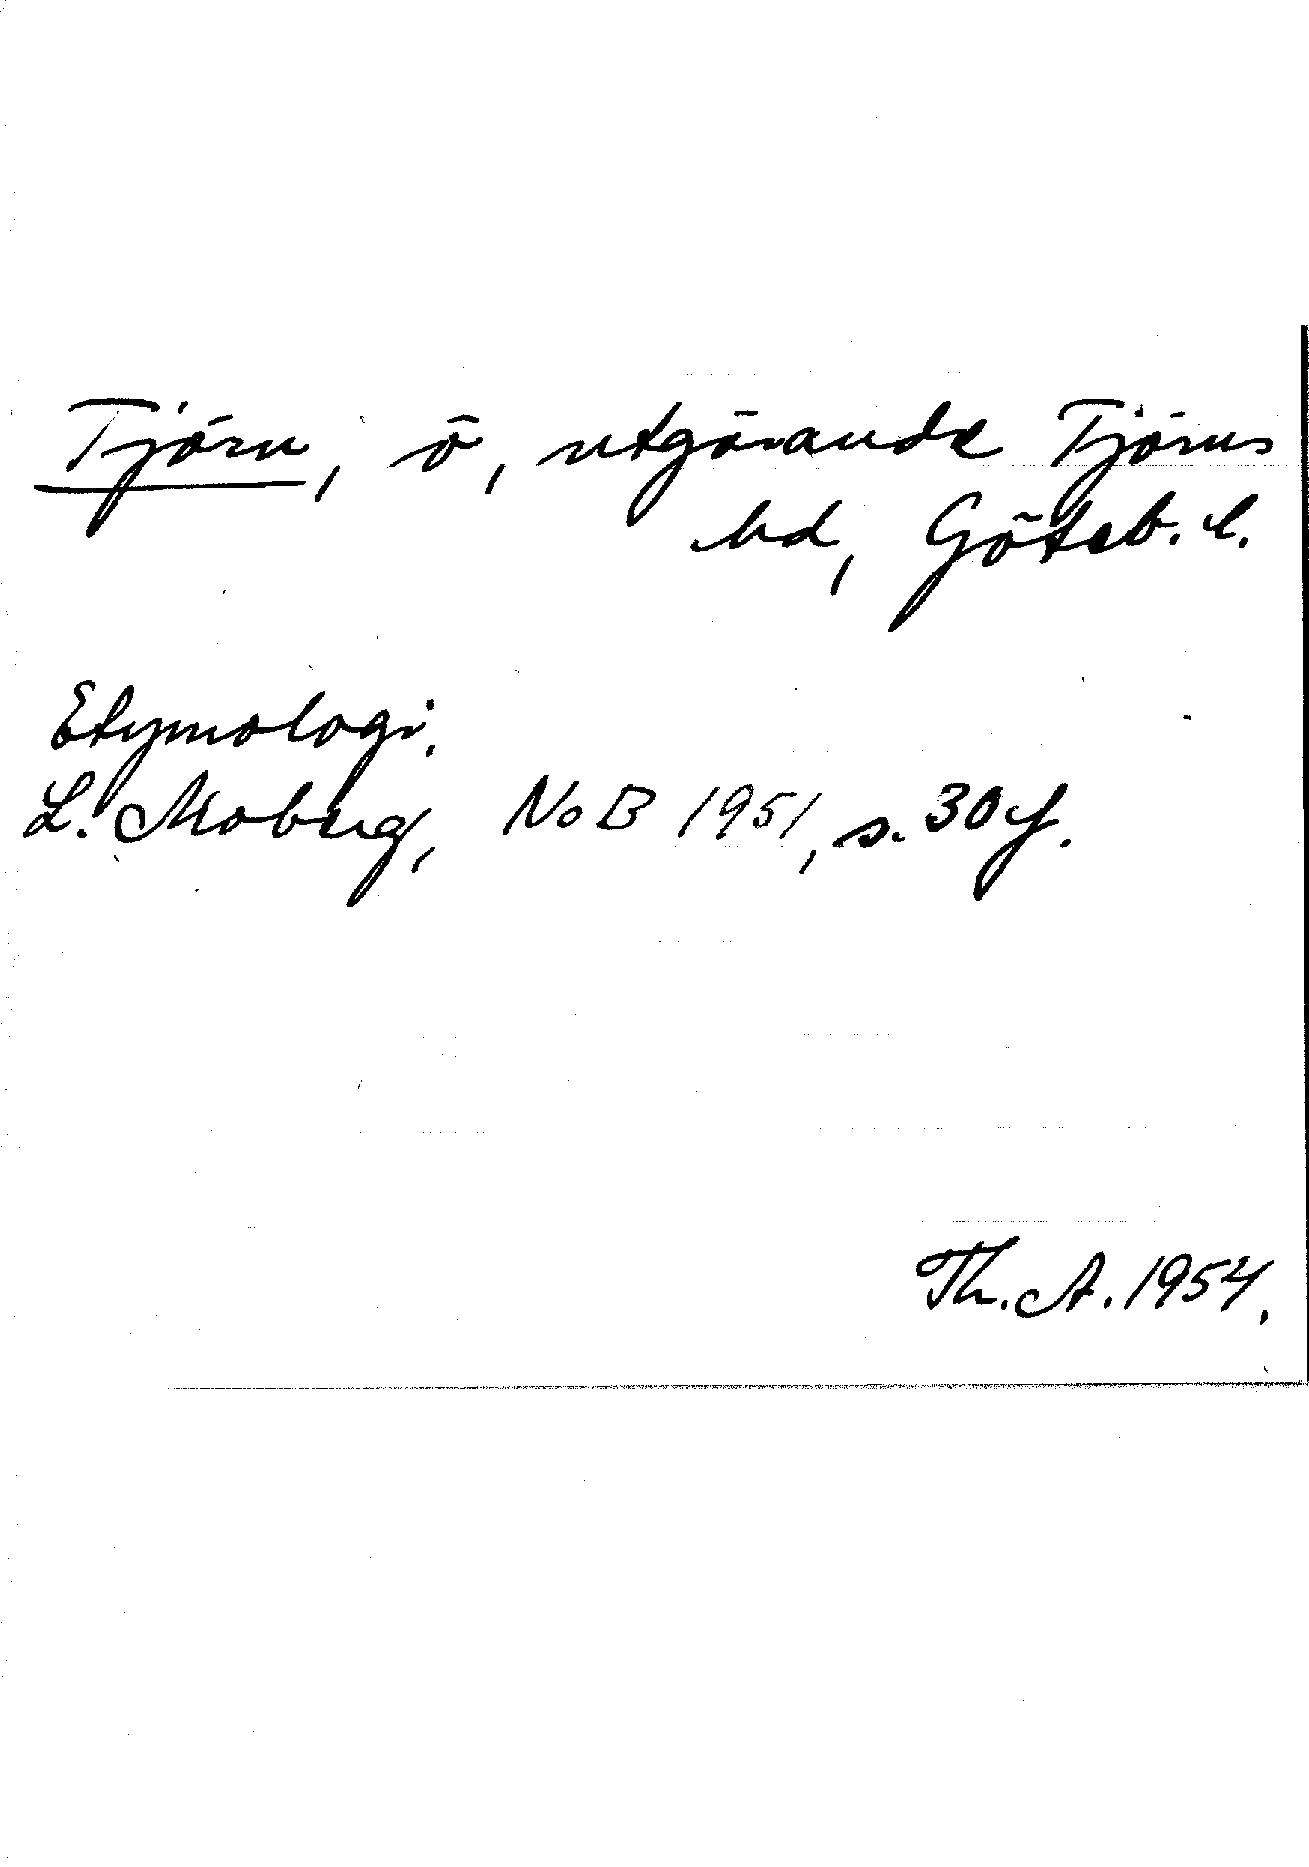 Tjörn, ö, utgörande Tjörns
hd, Göteb. l.
Etymologi.
L. Moberg, NoB 1951, s. 30 f.
Th. A. 1954.